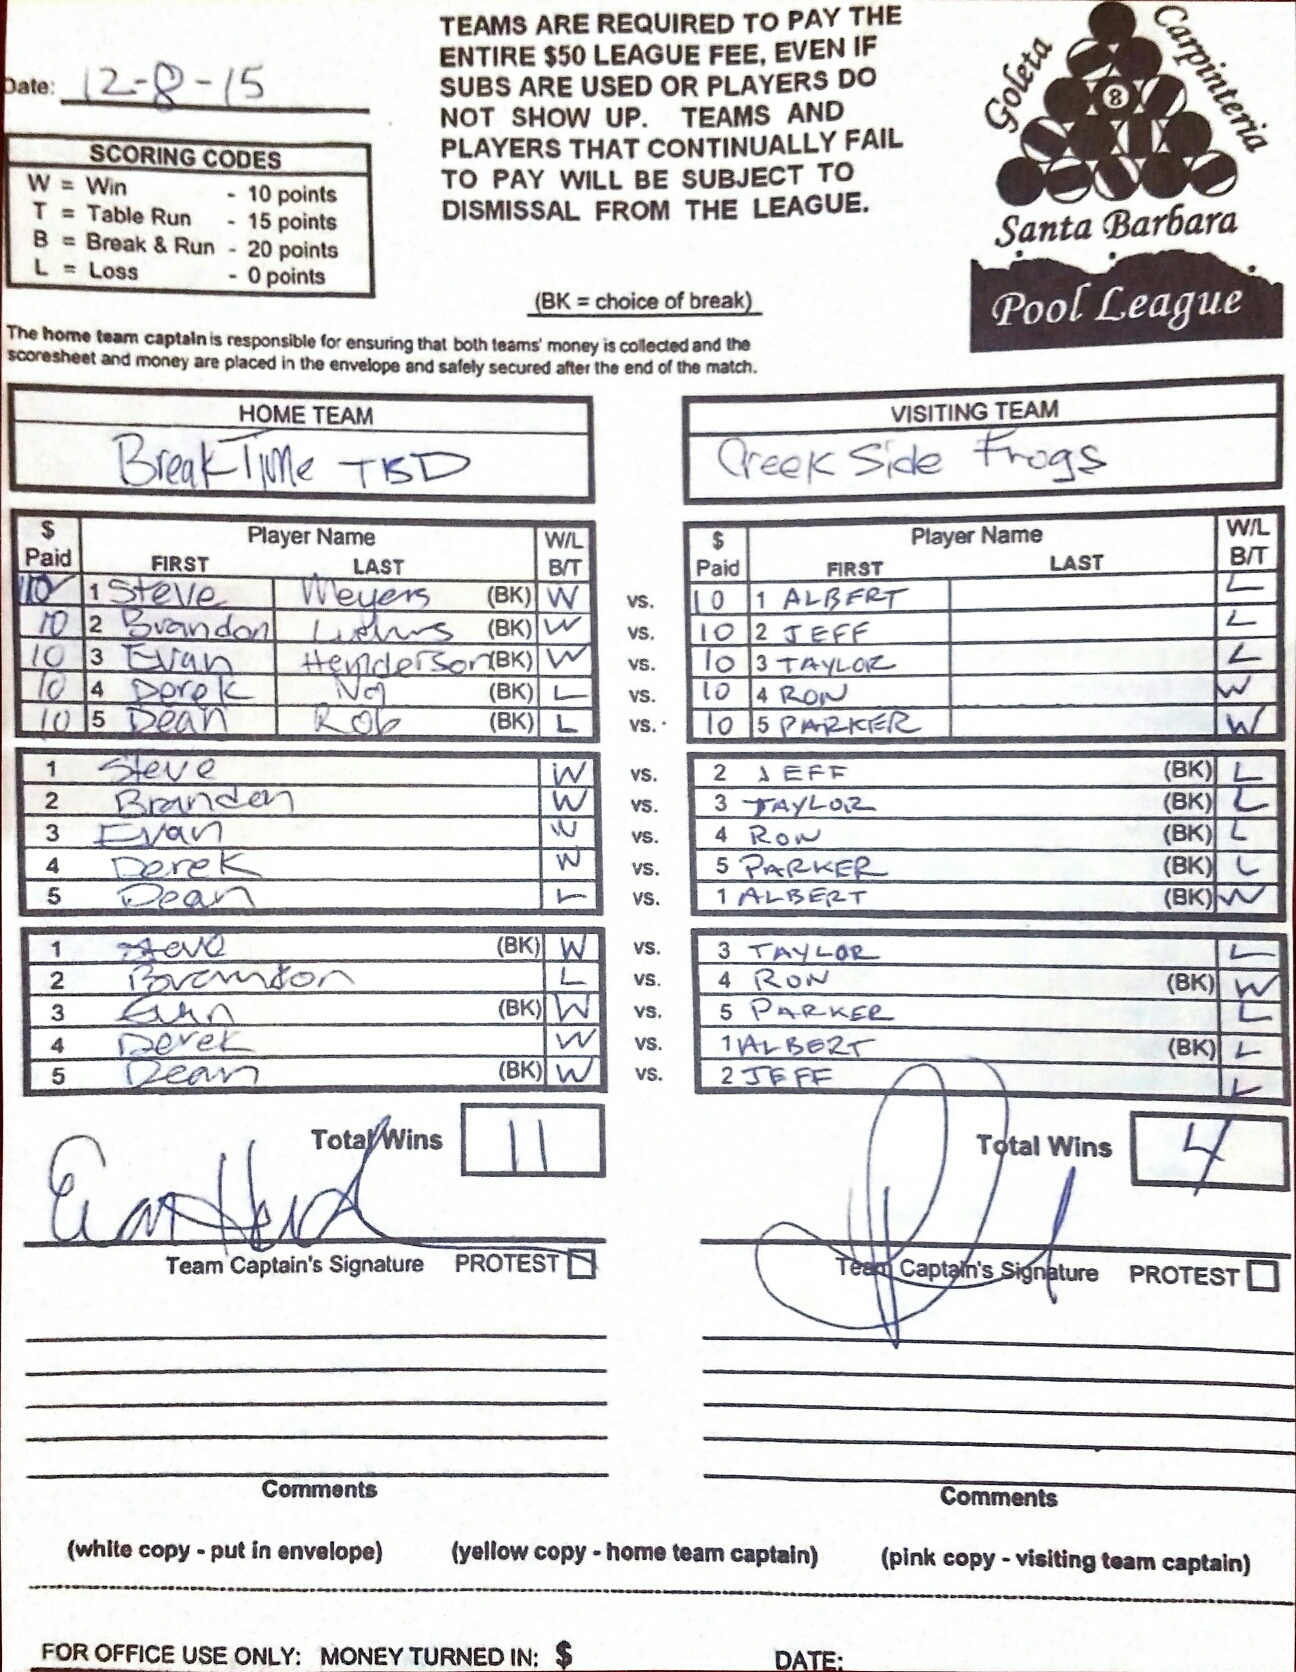 Date: 12-8-15
TEAMS ARE REQUIRED TO PAY THE
ENTIRE $50 LEAGUE FEE, EVEN IF
SUBS ARE USED OR PLAYERS DO
NOT SHOW UP. TEAMS AND
PLAYERS THAT CONTINUALLY FAIL
TO PAY WILL BE SUBJECT TO
DISMISSAL FROM THE LEAGUE.
Goleta
Carpinteria
8
Santa Barbara
Pool League
SCORING CODES
W = Win - 10 points
T = Table Run - 15 points
B = Break & Run - 20 points
L = Loss - 0 points
(BK = choice of break)
The home team captain is responsible for ensuring that both teams' money is collected and the
scoresheet and money are placed in the envelope and safely secured after the end of the match.
HOME TEAM VISITING TEAM
Break Time TBD Creek Side Frogs
$ Player Name W/L $ Player Name W/L
Paid FIRST LAST B/T Paid FIRST LAST B/T
10 1 Steve Meyers (BK) W vs. 10 1 ALBERT L
10 2 Brandon (BK) W vs. 10 2 JEFF L
10 3 Evan Henderson (BK) W vs. 10 3 TAYLOR L
10 4 Derek (BK) L vs. 10 4 RON W
10 5 Dean Rob (BK) L vs. 10 5 PARKER W
1 Steve W vs. 2 JEFF (BK) L
2 Brandon W vs. 3 TAYLOR (BK) L
3 Evan W vs. 4 RON (BK) L
4 Derek W vs. 5 PARKER (BK) L
5 Dean L vs. 1 ALBERT (BK) W
1 Steve (BK) W vs. 3 TAYLOR L
2 Brandon L vs. 4 RON (BK) W
3 Evan (BK) W vs. 5 PARKER L
4 Derek W vs. 1 ALBERT (BK) L
5 Dean (BK) W vs. 2 JEFF L
Total Wins 11 Total Wins 4
Evan Hend
Team Captain's Signature PROTEST Team Captain's Signature PROTEST
Comments Comments
(white copy - put in envelope) (yellow copy - home team captain) (pink copy - visiting team captain)
FOR OFFICE USE ONLY: MONEY TURNED IN: $ DATE: